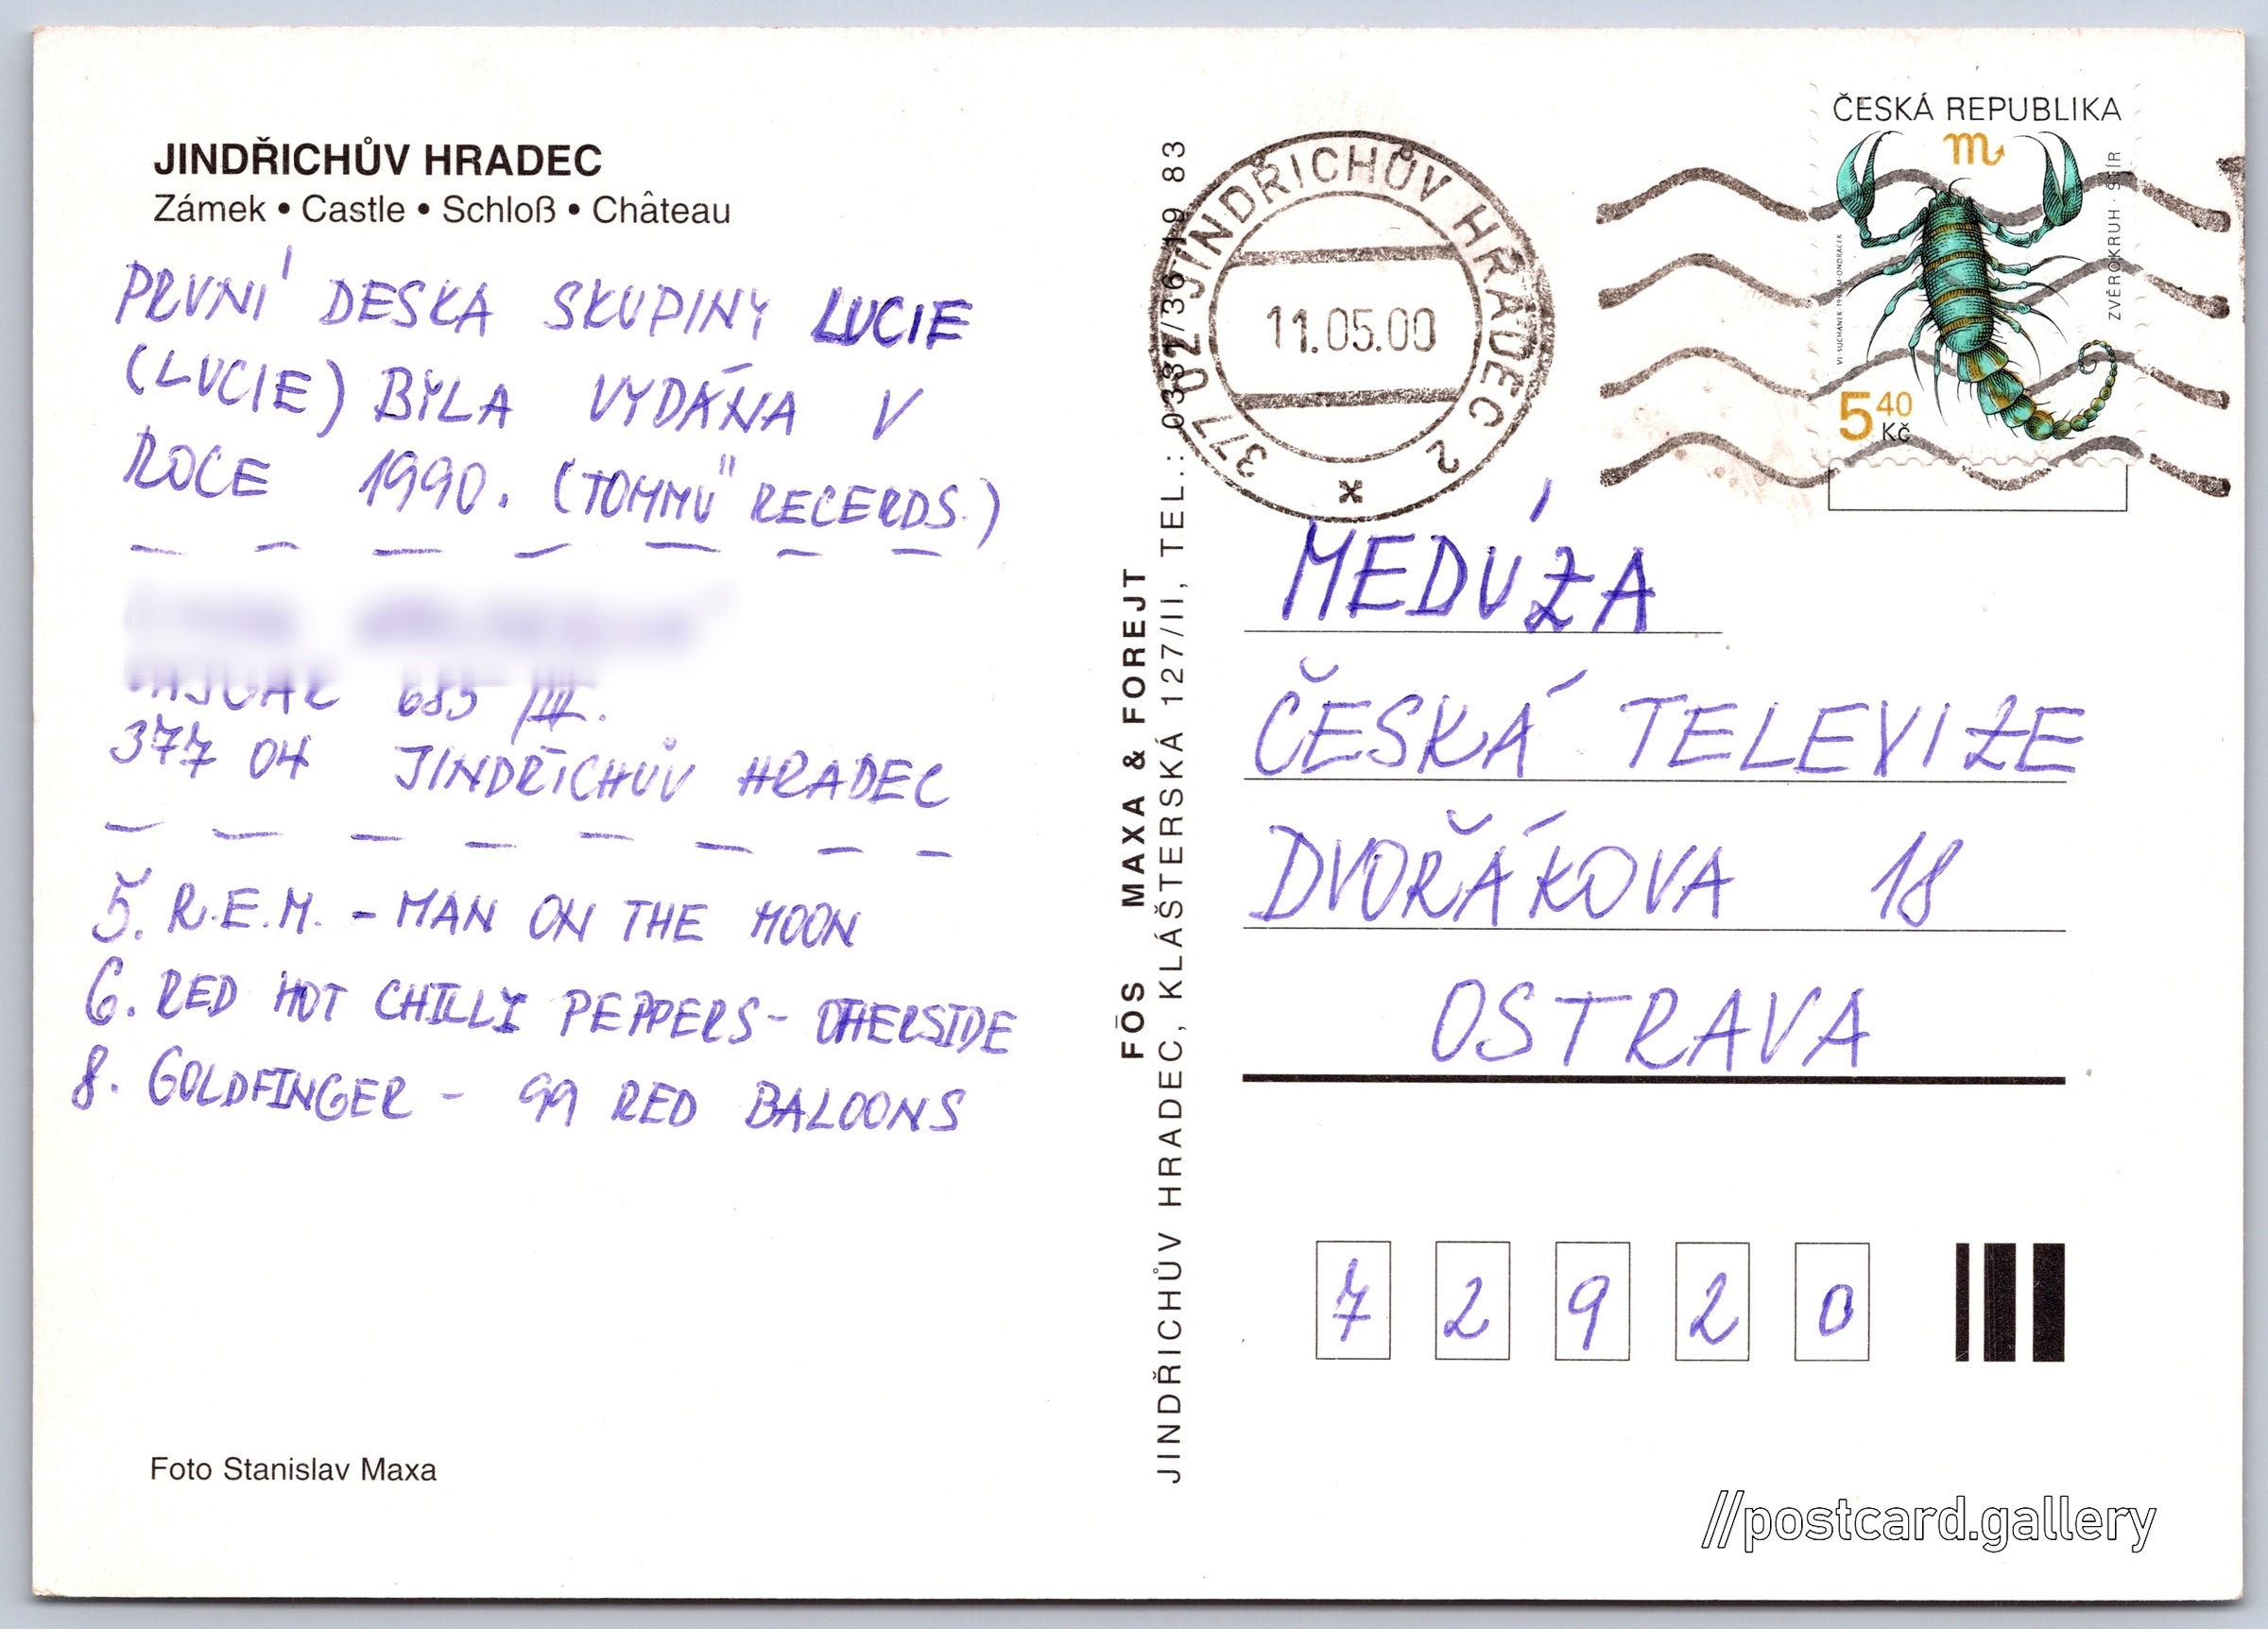 JINDŘICHŮV HRADEC
Zámek • Castle • Schloß • Château
PRVNÍ DESKA SKUPINY LUCIE
(LUCIE) BYLA VYDÁNA V
ROCE 1990. (TOMMÜ RECERDS.)
685 /III.
377 04 JINDŘICHŮV HRADEC
5. R.E.M. - MAN ON THE MOON
6. RED HOT CHILLI PEPPERS - OTHERSIDE
8. GOLDFINGER - 99 RED BALOONS
Foto Stanislav Maxa
FŌS MAXA & FOREJT
JINDŘICHŮV HRADEC, KLÁŠTERSKÁ 127/II, TEL.: 0331/36 19 83
377 02 JINDŘICHŮV HRADEC 2
11.05.00
x
ČESKÁ REPUBLIKA
♏
ZVĚROKRUH · ŠTÍR
5 40
Kč
MEDÚZA
ČESKÁ TELEVIZE
DVOŘÁKOVA 18
OSTRAVA
7 2 9 2 0
//postcard.gallery